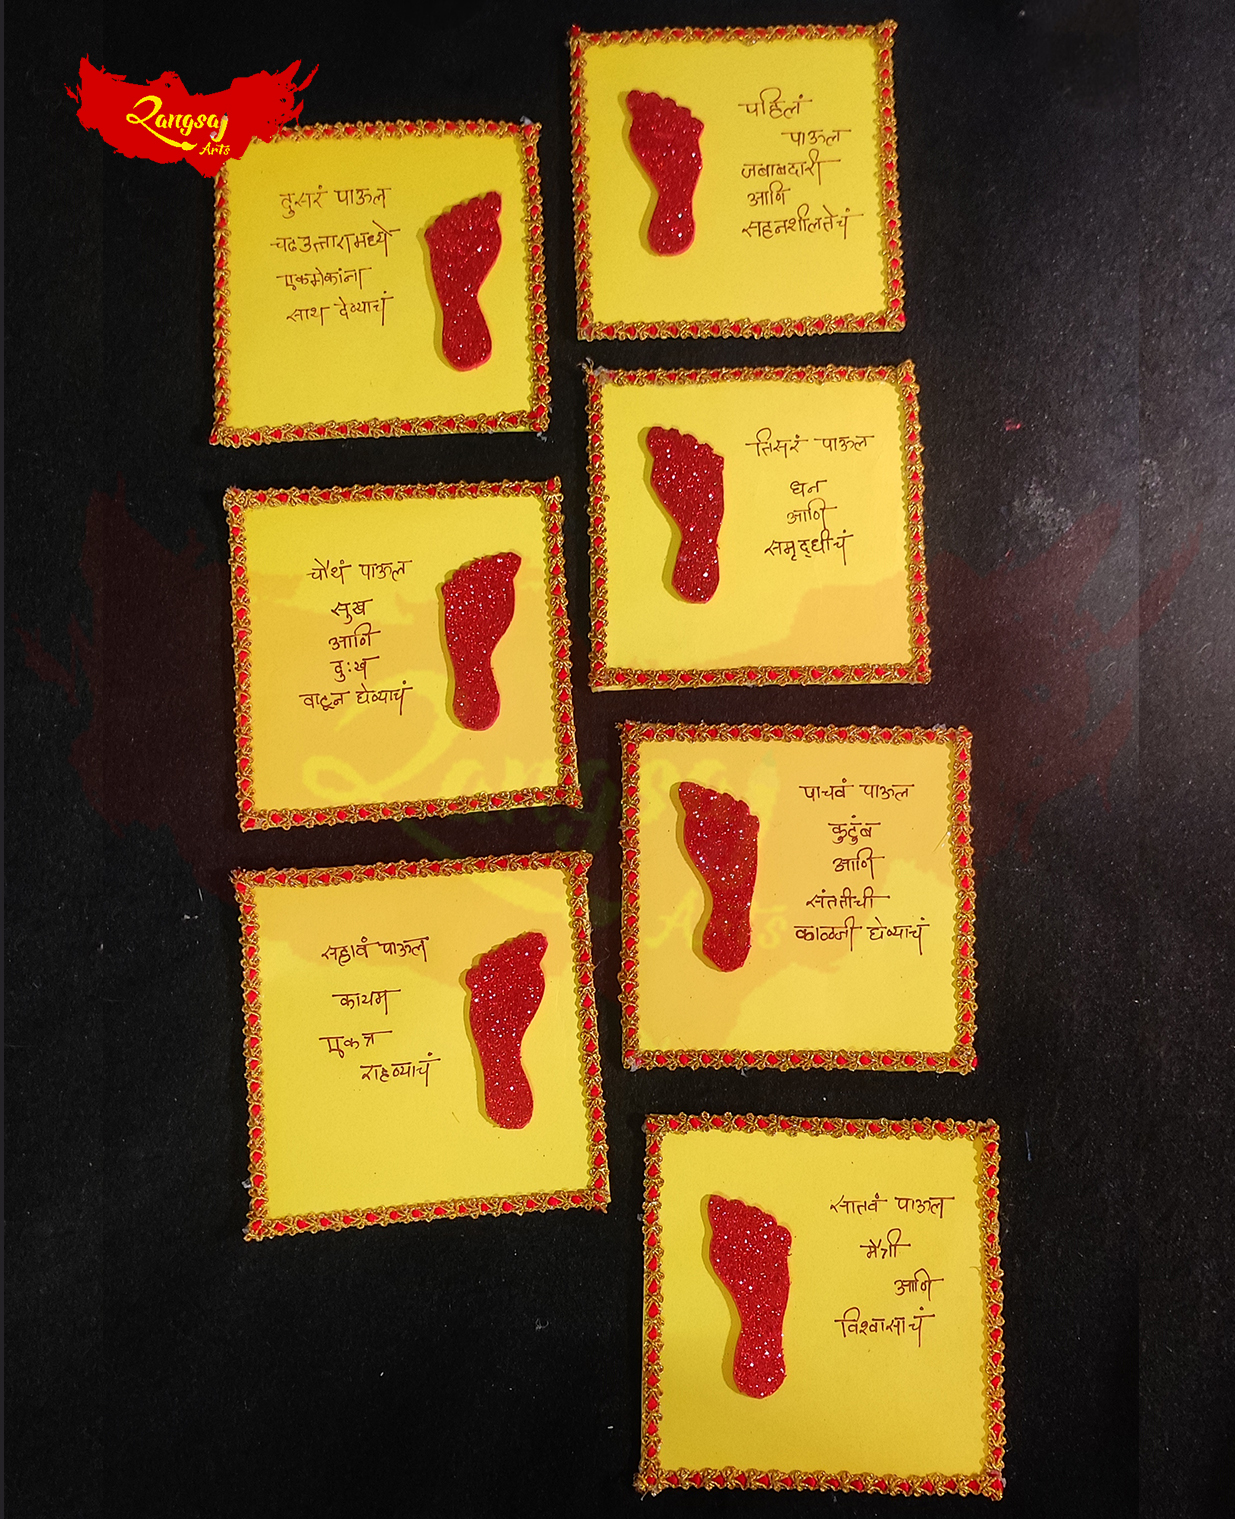 Rangsaj
Arts
पहिलं
पाऊल
जबाबदारी
आणि
सहनशीलतेचं
दुसरं पाऊल
चढउत्तारामध्ये
एकमेकांना
साथ देण्याचं
तिसरं पाऊल
धन
आणि
समृद्धीचं
चौथं पाऊल
सुख
आणि
दुःख
वाटून घेण्याचं
पाचवं पाऊल
कुटुंब
आणि
संततीची
काळजी घेण्याचं
सहावं पाऊल
कायम
एकत्र
राहण्याचं
सातवं पाऊल
मैत्री
आणि
विश्वासाचं
Rangsaj
Arts